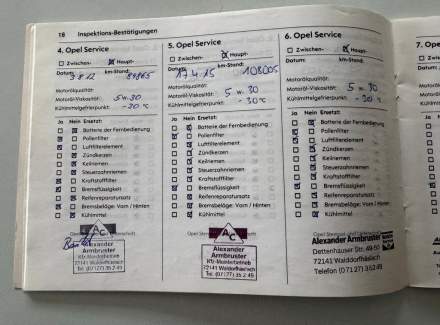 18 Inspektions-Bestätigungen
4. Opel Service
Zwischen- Haupt-
Datum: km-Stand:
Motorölqualität:
Motoröl-Viskosität: 5 w. 30
Kühlmittelgefrierpunkt: -20 °C
Ja Nein Ersetzt:
Batterie der Fernbedienung
Pollenfilter
Luftfilterelement
Zündkerzen
Keilriemen
Steuerzahnriemen
Kraftstofffilter
Bremsflüssigkeit
Reifenreparatursatz
Bremsbeläge: Vorn / Hinten
Kühlmittel
Alexander
Armbruster
Kfz-Meisterbetrieb
72141 Walddorfhäslach
Tel. (07127) 35 2 49
5. Opel Service
Zwischen- Haupt-
Datum: km-Stand:
17.4.15 108005
Motorölqualität:
Motoröl-Viskosität: 5 w. 30
Kühlmittelgefrierpunkt: -30 °C
Ja Nein Ersetzt:
Batterie der Fernbedienung
Pollenfilter
Luftfilterelement
Zündkerzen
Keilriemen
Steuerzahnriemen
Kraftstofffilter
Bremsflüssigkeit
Reifenreparatursatz
Bremsbeläge: Vorn / Hinten
Kühlmittel
AC
Alexander
Armbruster
Kfz-Meisterbetrieb
72141 Walddorfhäslach
Tel. (07127) 35 2 49
6. Opel Service
Zwischen- Haupt-
Datum: km-Stand:
Motorölqualität:
Motoröl-Viskosität: 5 w. 30
Kühlmittelgefrierpunkt: -30 °C
Ja Nein Ersetzt:
Batterie der Fernbedienung
Pollenfilter
Luftfilterelement
Zündkerzen
Keilriemen
Steuerzahnriemen
Kraftstofffilter
Bremsflüssigkeit
Reifenreparatursatz
Bremsbeläge: Vorn / Hinten
Kühlmittel
Alexander Armbruster
Dettenhauser Str. 49-50
72141 Walddorfhäslach
Telefon (07127) 35249
7. Ope